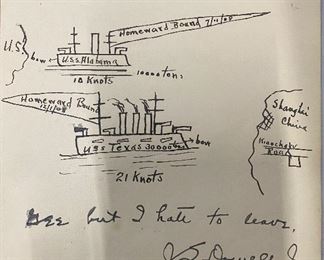 Homeward Bound 7/11/08
U.S.
bow
U.S.S. Alabama
10 Knots
10000 tons
Homeward Bound
12/1/08
Shanghai
China
U.S.S. Texas 30000
bow
21 Knots
Road
but I hate to leave.